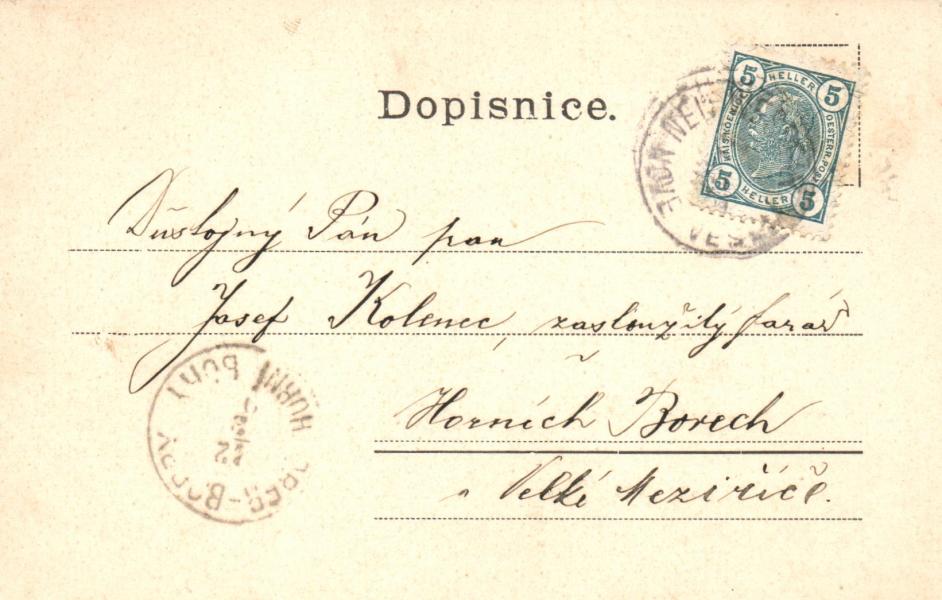 Dopisnice.
5 HELLER 5
KAIS.KOENIGL. OESTERR.POST
5 HELLER 5
VES
Důstojný Pán pan
Josef Kolenec, zasloužilý farář
v
Horních Borech
u Velké Meziříčí.
HORNÍ BORY
OBER-BORY